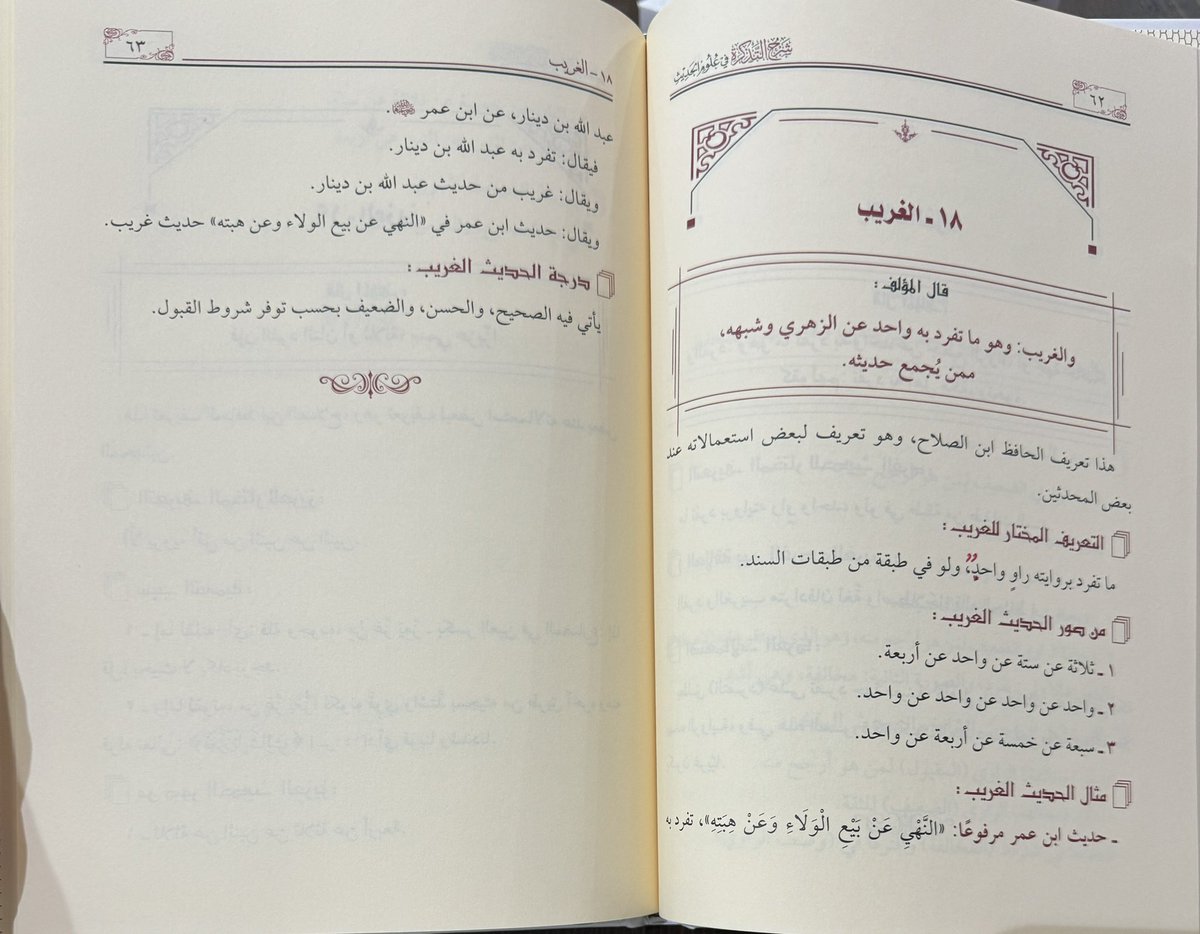 شرح التذكرة في علوم الحديث
٦٢
١٨ ـ الغريب
قال المؤلف:
والغريب: وهو ما تفرد به واحد عن الزهري وشبهه،
ممن يُجمع حديثه.
هذا تعريف الحافظ ابن الصلاح، وهو تعريف لبعض استعمالاته عند
بعض المحدثين.
التعريف المختار للغريب:
ما تفرد بروايته راوٍ واحدٍ، ولو في طبقة من طبقات السند.
من صور الحديث الغريب:
١ ـ ثلاثة عن ستة عن واحد عن أربعة.
٢ ـ واحد عن واحد عن واحد عن واحد.
٣ ـ سبعة عن خمسة عن أربعة عن واحد.
مثال الحديث الغريب:
ـ حديث ابن عمر مرفوعًا: «النَّهْيِ عَنْ بَيْعِ الْوَلَاءِ وَعَنْ هِبَتِهِ»، تفرد به
١٨ - الغريب
٦٣
عبد الله بن دينار، عن ابن عمر ﵄.
فيقال: تفرد به عبد الله بن دينار.
ويقال: غريب من حديث عبد الله بن دينار.
ويقال: حديث ابن عمر في «النهي عن بيع الولاء وعن هبته» حديث غريب.
درجة الحديث الغريب:
يأتي فيه الصحيح، والحسن، والضعيف بحسب توفر شروط القبول.